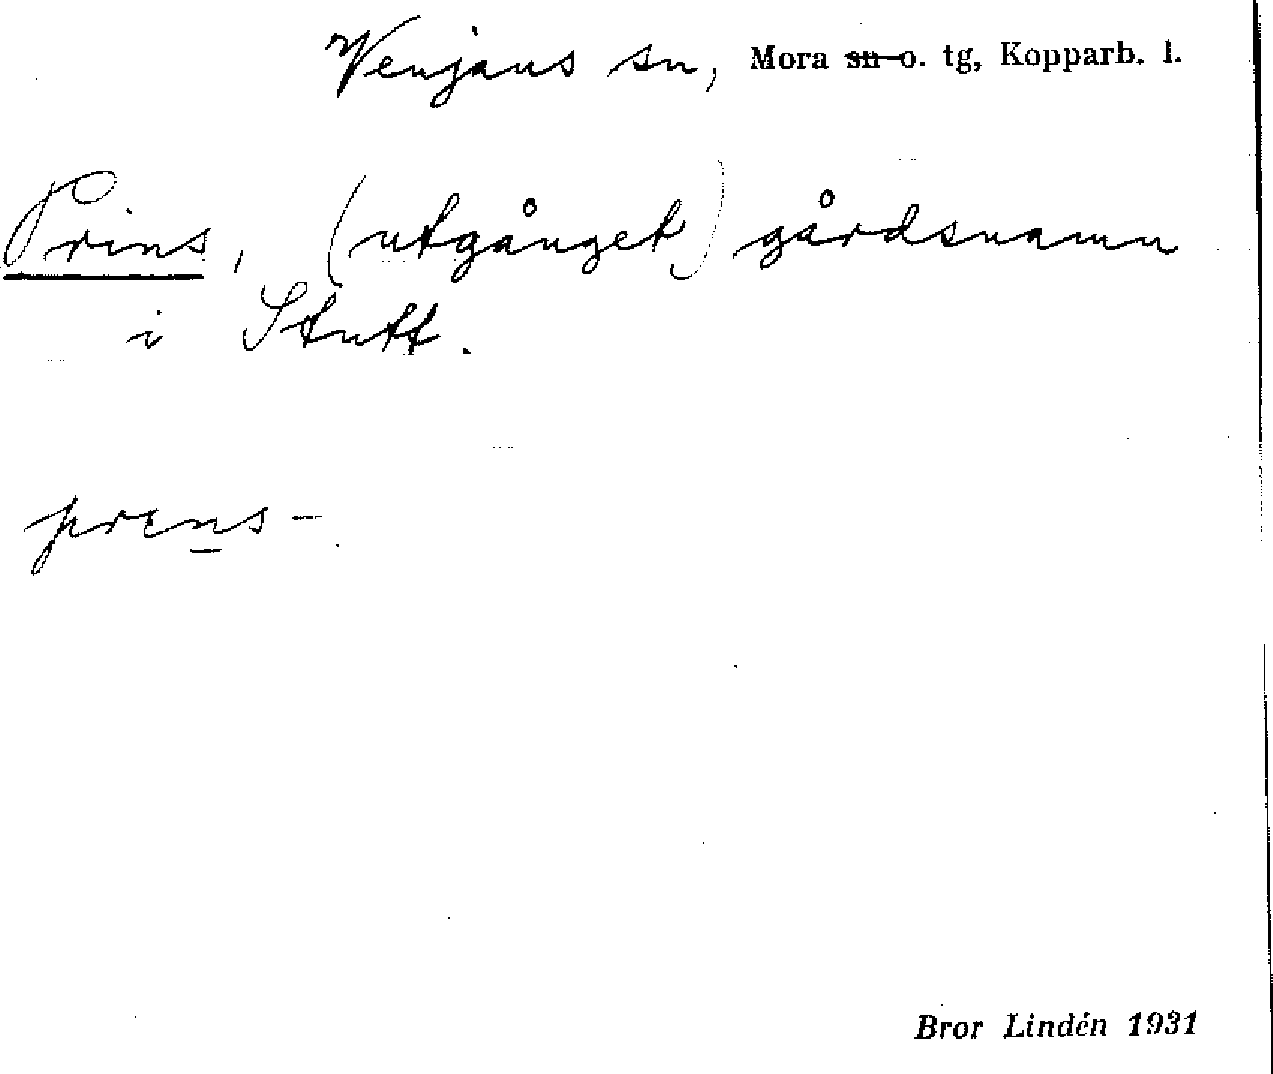 Venjans sn, Mora sn o. tg, Kopparb. l.
Prins, (utgånget) gårdsnamn
i Stutt.
prens-
Bror Lindén 1931